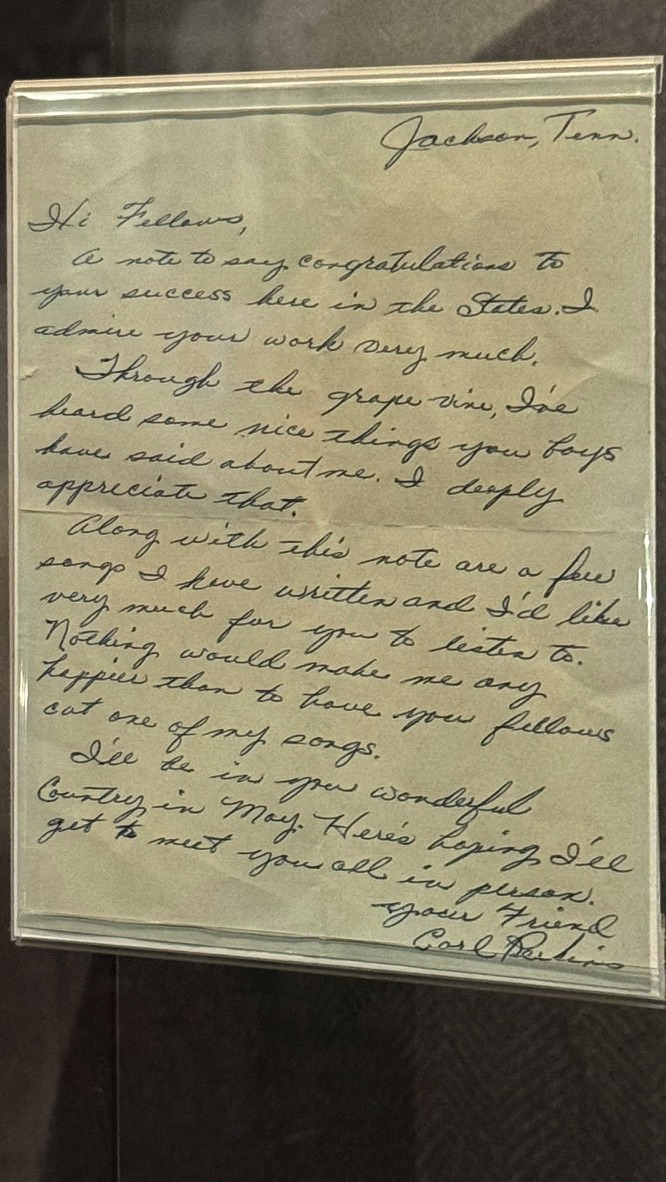 Jackson, Tenn.
Hi Fellows,
A note to say congratulations to
your success here in the States. I
admire your work very much.
Through the grape vine, I've
heard some nice things you boys
have said about me. I deeply
appreciate that.
Along with this note are a few
songs I have written and I'd like
very much for you to listen to.
Nothing would make me any
happier than to have you fellows
cut one of my songs.
I'll be in your wonderful
Country in May. Here's hoping I'll
get to meet you all in person.
your Friend
Carl Perkins